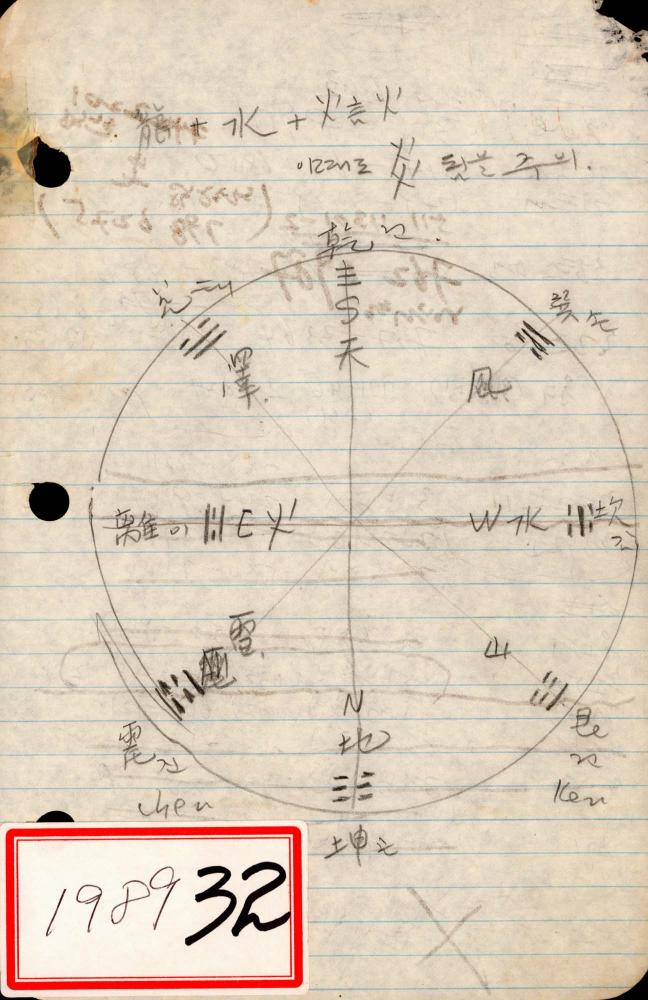 龍 + 水 + 火言火
이대로 炎 됨을 주의.
乾 건.
兌 태
巽 손
S
天
澤.
風
離 이 E 火
W 水 坎 감
雷.
山
N
地
震 진
chen
艮
간
Ken
坤 곤
1989 32